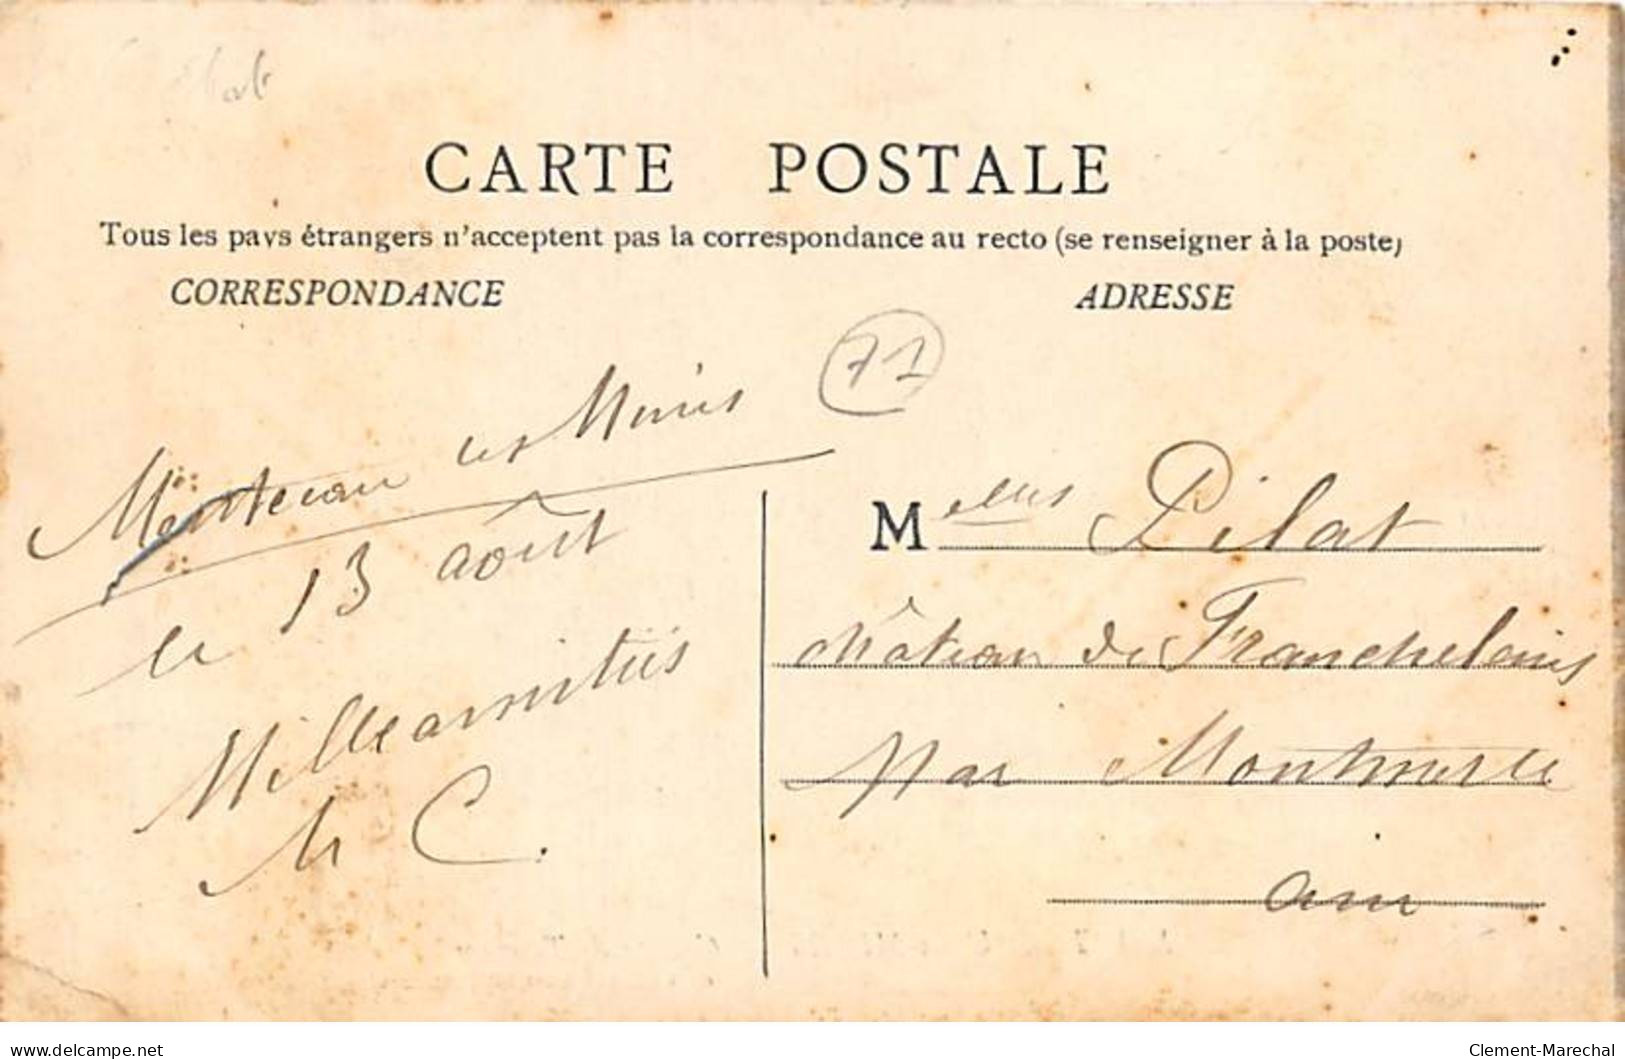 CARTE POSTALE
Tous les pays étrangers n'acceptent pas la correspondance au recto (se renseigner à la poste)
CORRESPONDANCE
ADRESSE
71
Montceau les Mines
le 13 août
Mille amitiés
M C.
Melles Pilat
château de Francheleins
par Montmerle
ain
delcampe.net
Clement-Marechal